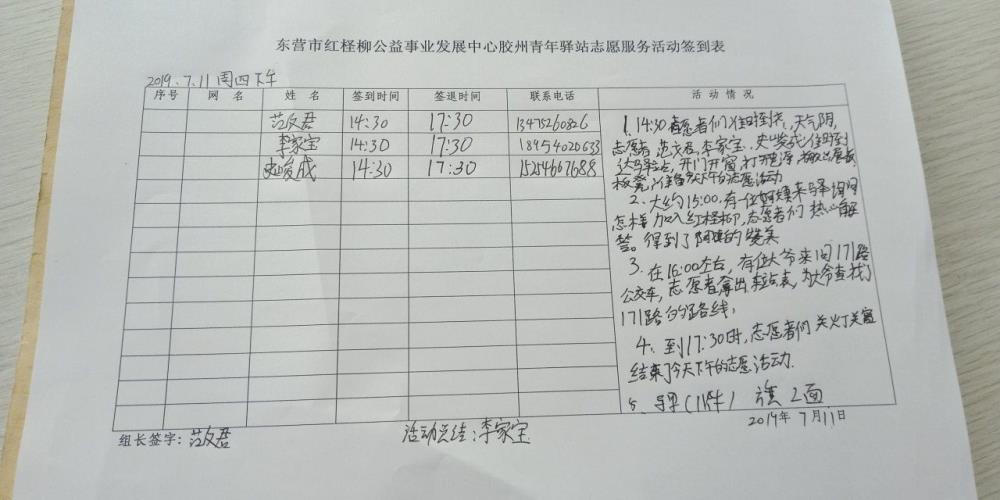 东营市红柽柳公益事业发展中心胶州青年驿站志愿服务活动签到表
2019.7.11 周四下午
序号 网名 姓名 签到时间 签退时间 联系电话 活动情况
范文君 14:30 17:30 13475260826
李家宝 14:30 17:30 18954020633
史俊成 14:30 17:30 15254667688
1. 14:30志愿者们 天气阴,
志愿者 范文君、李家宝、史俊成
达驿站点,开门开窗,打开电源
板凳,准备今天下午的志愿活动
2、大约15:00,有一位阿姨来驿站问
怎样加入红柽柳,志愿者们热心解
答。得到了阿姨的赞美
3、在16:00左右,有位大爷来问171路
公交车,志愿者拿出 站表,为大爷查找了
171路的路线,
4、到17:30时,志愿者们关灯关窗
结束了今天下午的志愿活动.
5、 (1件) 旗2面
2019年7月11日
组长签字:范文君 活动总结:李家宝